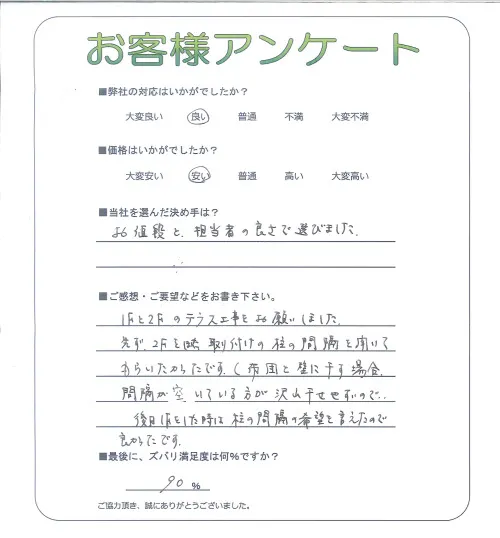 お客様アンケート
■弊社の対応はいかがでしたか？
大変良い 良い 普通 不満 大変不満
■価格はいかがでしたか？
大変安い 安い 普通 高い 大変高い
■当社を選んだ決め手は？
お値段と、担当者の良さで選びました。
■ご感想・ご要望などをお書き下さい。
1Fと2Fのテラス工事をお願いしました。
先ず、2Fを 取り付けの柱の間隔を聞いて
もらいたかったです。(布団を壁に干す場合、
間隔が空いている方が沢山干せますので..
後日1Fをした時は柱の間隔の希望を言えたので
良かったです。
■最後に、ズバリ満足度は何％ですか？
90 %
ご協力頂き、誠にありがとうございました。